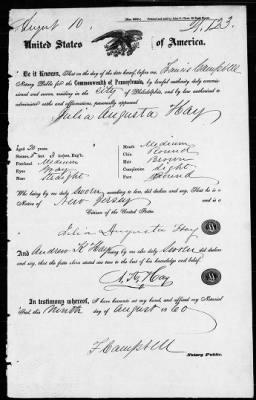 August 10.
United States of America.
Be it Known, That on the day of the date hereof, before me, Francis Campbell
Notary Public for the Commonwealth of Pennsylvania, by lawful authority duly commis-
sioned and sworn residing in the City of Philadelphia, and by law authorized to
administer oaths and affirmations, personally appeared
Julia Augusta Hay
Aged 20 years Mouth Medium
Stature, 5 feet 3 inches Eng. Chin Round
Forehead Medium Hair Brown
Eyes Gray Complexion Light
Nose Straight Face Round
Who being by me duly Sworn according to law, did declare and say, That he is a
Native of New Jersey and a
Citizen of the United States
Julia Augusta Hay
And Andrew K Hay being by me also duly Sworn did declare
and say, that the facts above stated are true to the best of his knowledge and belief.
A. K. Hay
In testimony whereof, I have hereunto set my hand, and official my Notarial
Seal, this Ninth day of August 1860
F Campbell
Notary Public.